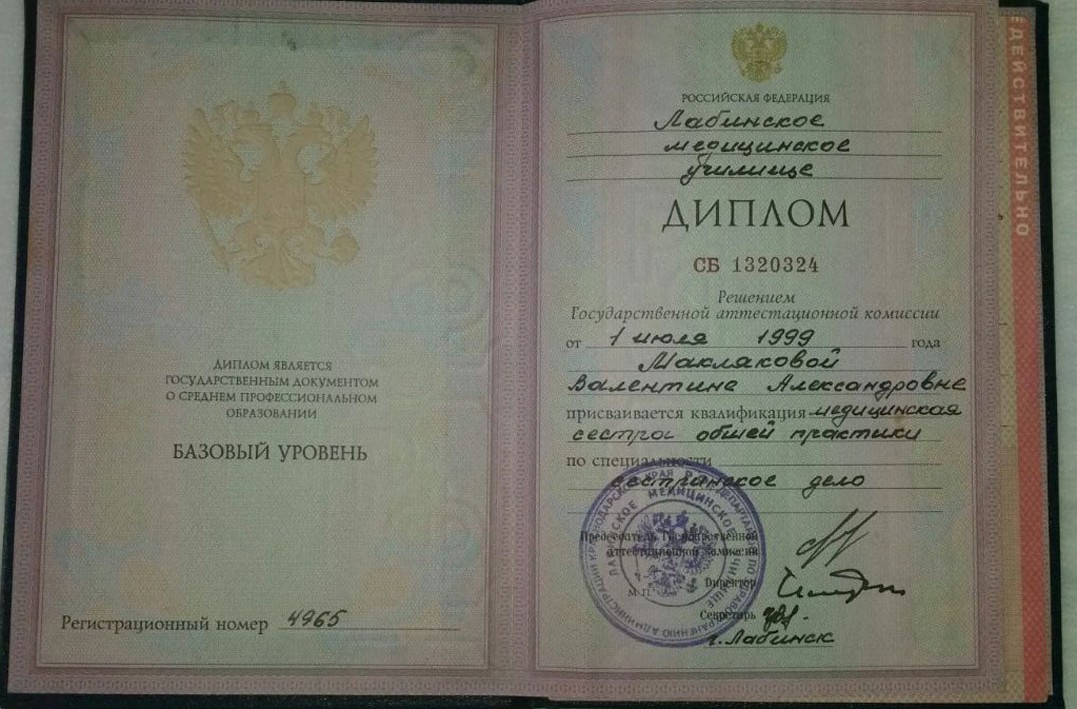 ДИПЛОМ ЯВЛЯЕТСЯ
ГОСУДАРСТВЕННЫМ ДОКУМЕНТОМ
О СРЕДНЕМ ПРОФЕССИОНАЛЬНОМ
ОБРАЗОВАНИИ
БАЗОВЫЙ УРОВЕНЬ
Регистрационный номер 4965
РОССИЙСКАЯ ФЕДЕРАЦИЯ
Лабинское
медицинское
училище
ДИПЛОМ
СБ 1320324
Решением
Государственной аттестационной комиссии
от 1 июля 1999 года
Маклаковой
Валентине Александровне
присваивается квалификация медицинская
сестра общей практики
по специальности
сестринское дело
Председатель Государственной
аттестационной комиссии
Директор
М.П.
Секретарь
г. Лабинск
ЛАБИНСКОЕ МЕДИЦИНСКОЕ УЧИЛИЩЕ
ЕДЕЙСТВИТЕЛЬНО